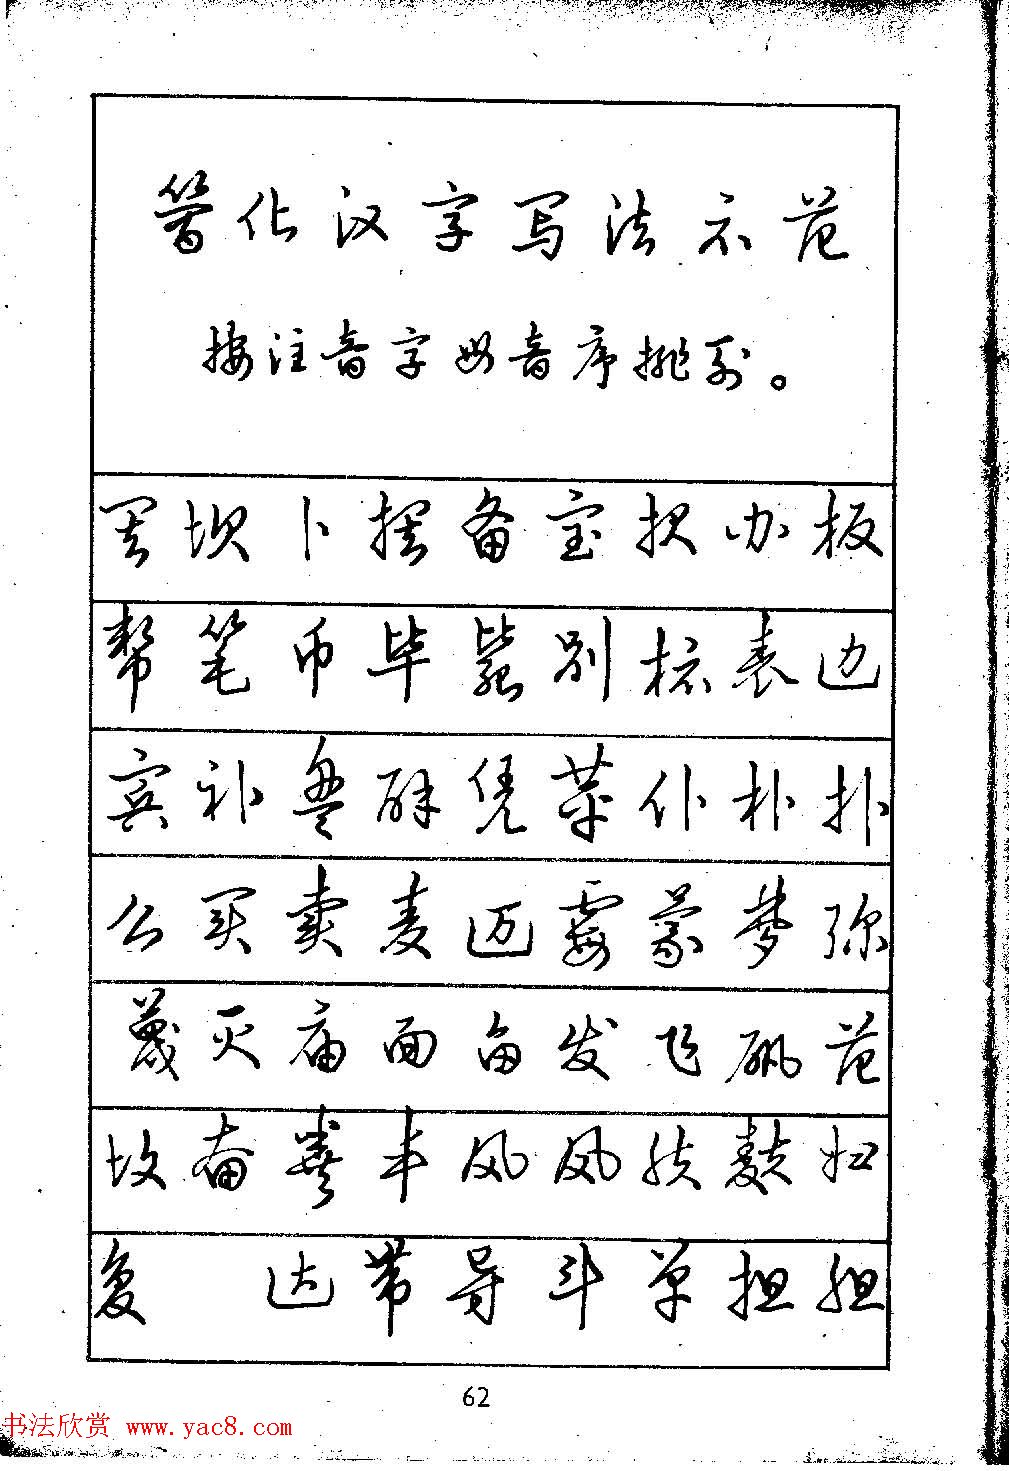 简化汉字写法示范
按注音字母音序排列。
罢坝卜摆备宝报办板
帮笔币毕毙别标表边
宾补盘凭苹仆朴扑
么买卖麦迈霉蒙梦弥
蔑灭庙面亩发飞矾范
坟奋粪丰风凤肤麸妇
复 达带导斗单担胆
62
书法欣赏 www.yac8.com